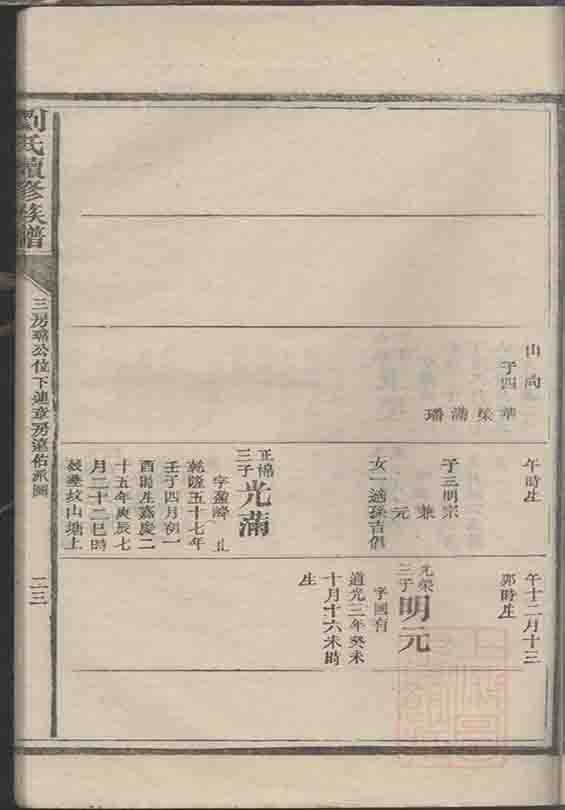 劉氏續修族譜
三房
公位下連章房遠佑派圖
二三
山向
子四
華
榮
滿
璠
午時生
子三明宗
兼
元
女一適孫吉倡
正楊
三子
光滿
字盈
乾隆五十七年
壬子四月初一
酉時生嘉慶二
十五年庚辰七
月二十二巳時
蚊山塘上
午十二月十三
卯時生
光榮
三子
明元
字國有
道光三年癸未
十月十六未時
生